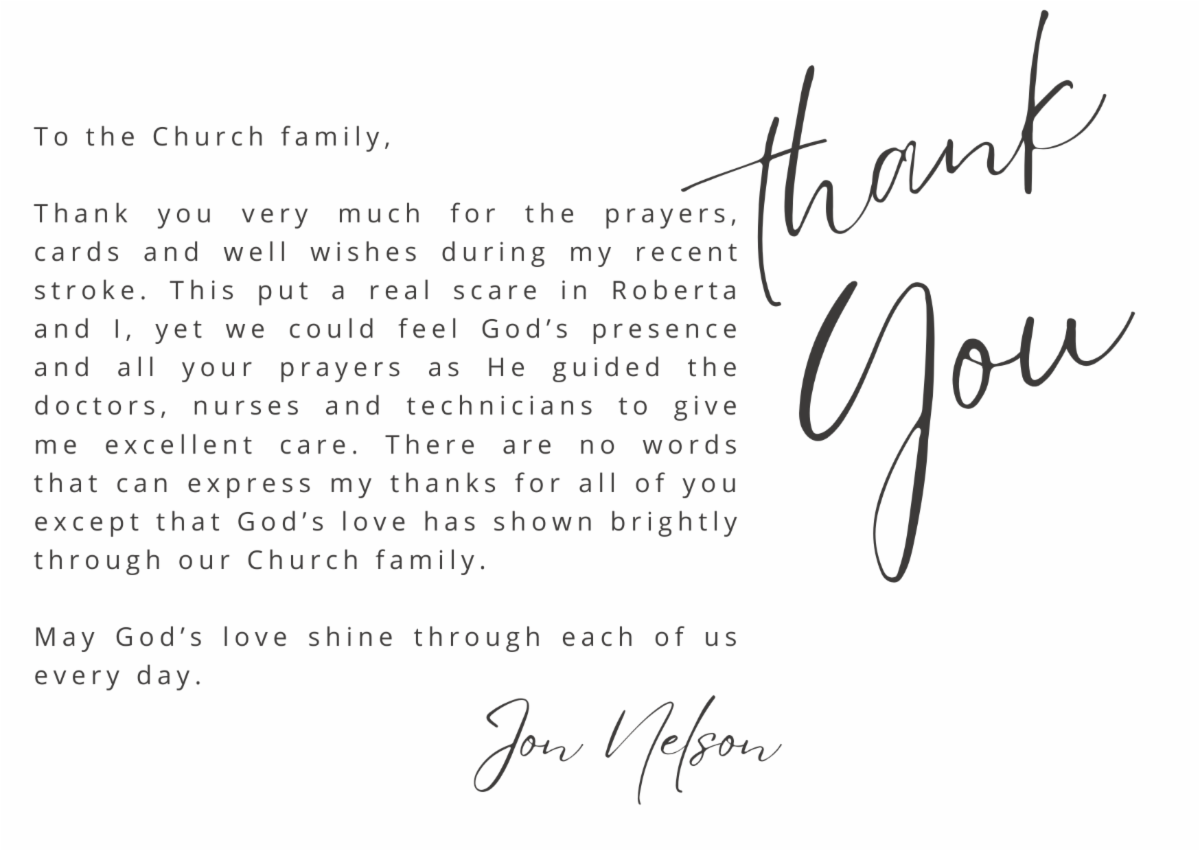 thank
you
To the Church family,
Thank you very much for the prayers,
cards and well wishes during my recent
stroke. This put a real scare in Roberta
and I, yet we could feel God’s presence
and all your prayers as He guided the
doctors, nurses and technicians to give
me excellent care. There are no words
that can express my thanks for all of you
except that God’s love has shown brightly
through our Church family.
May God’s love shine through each of us
every day.
Jon Nelson